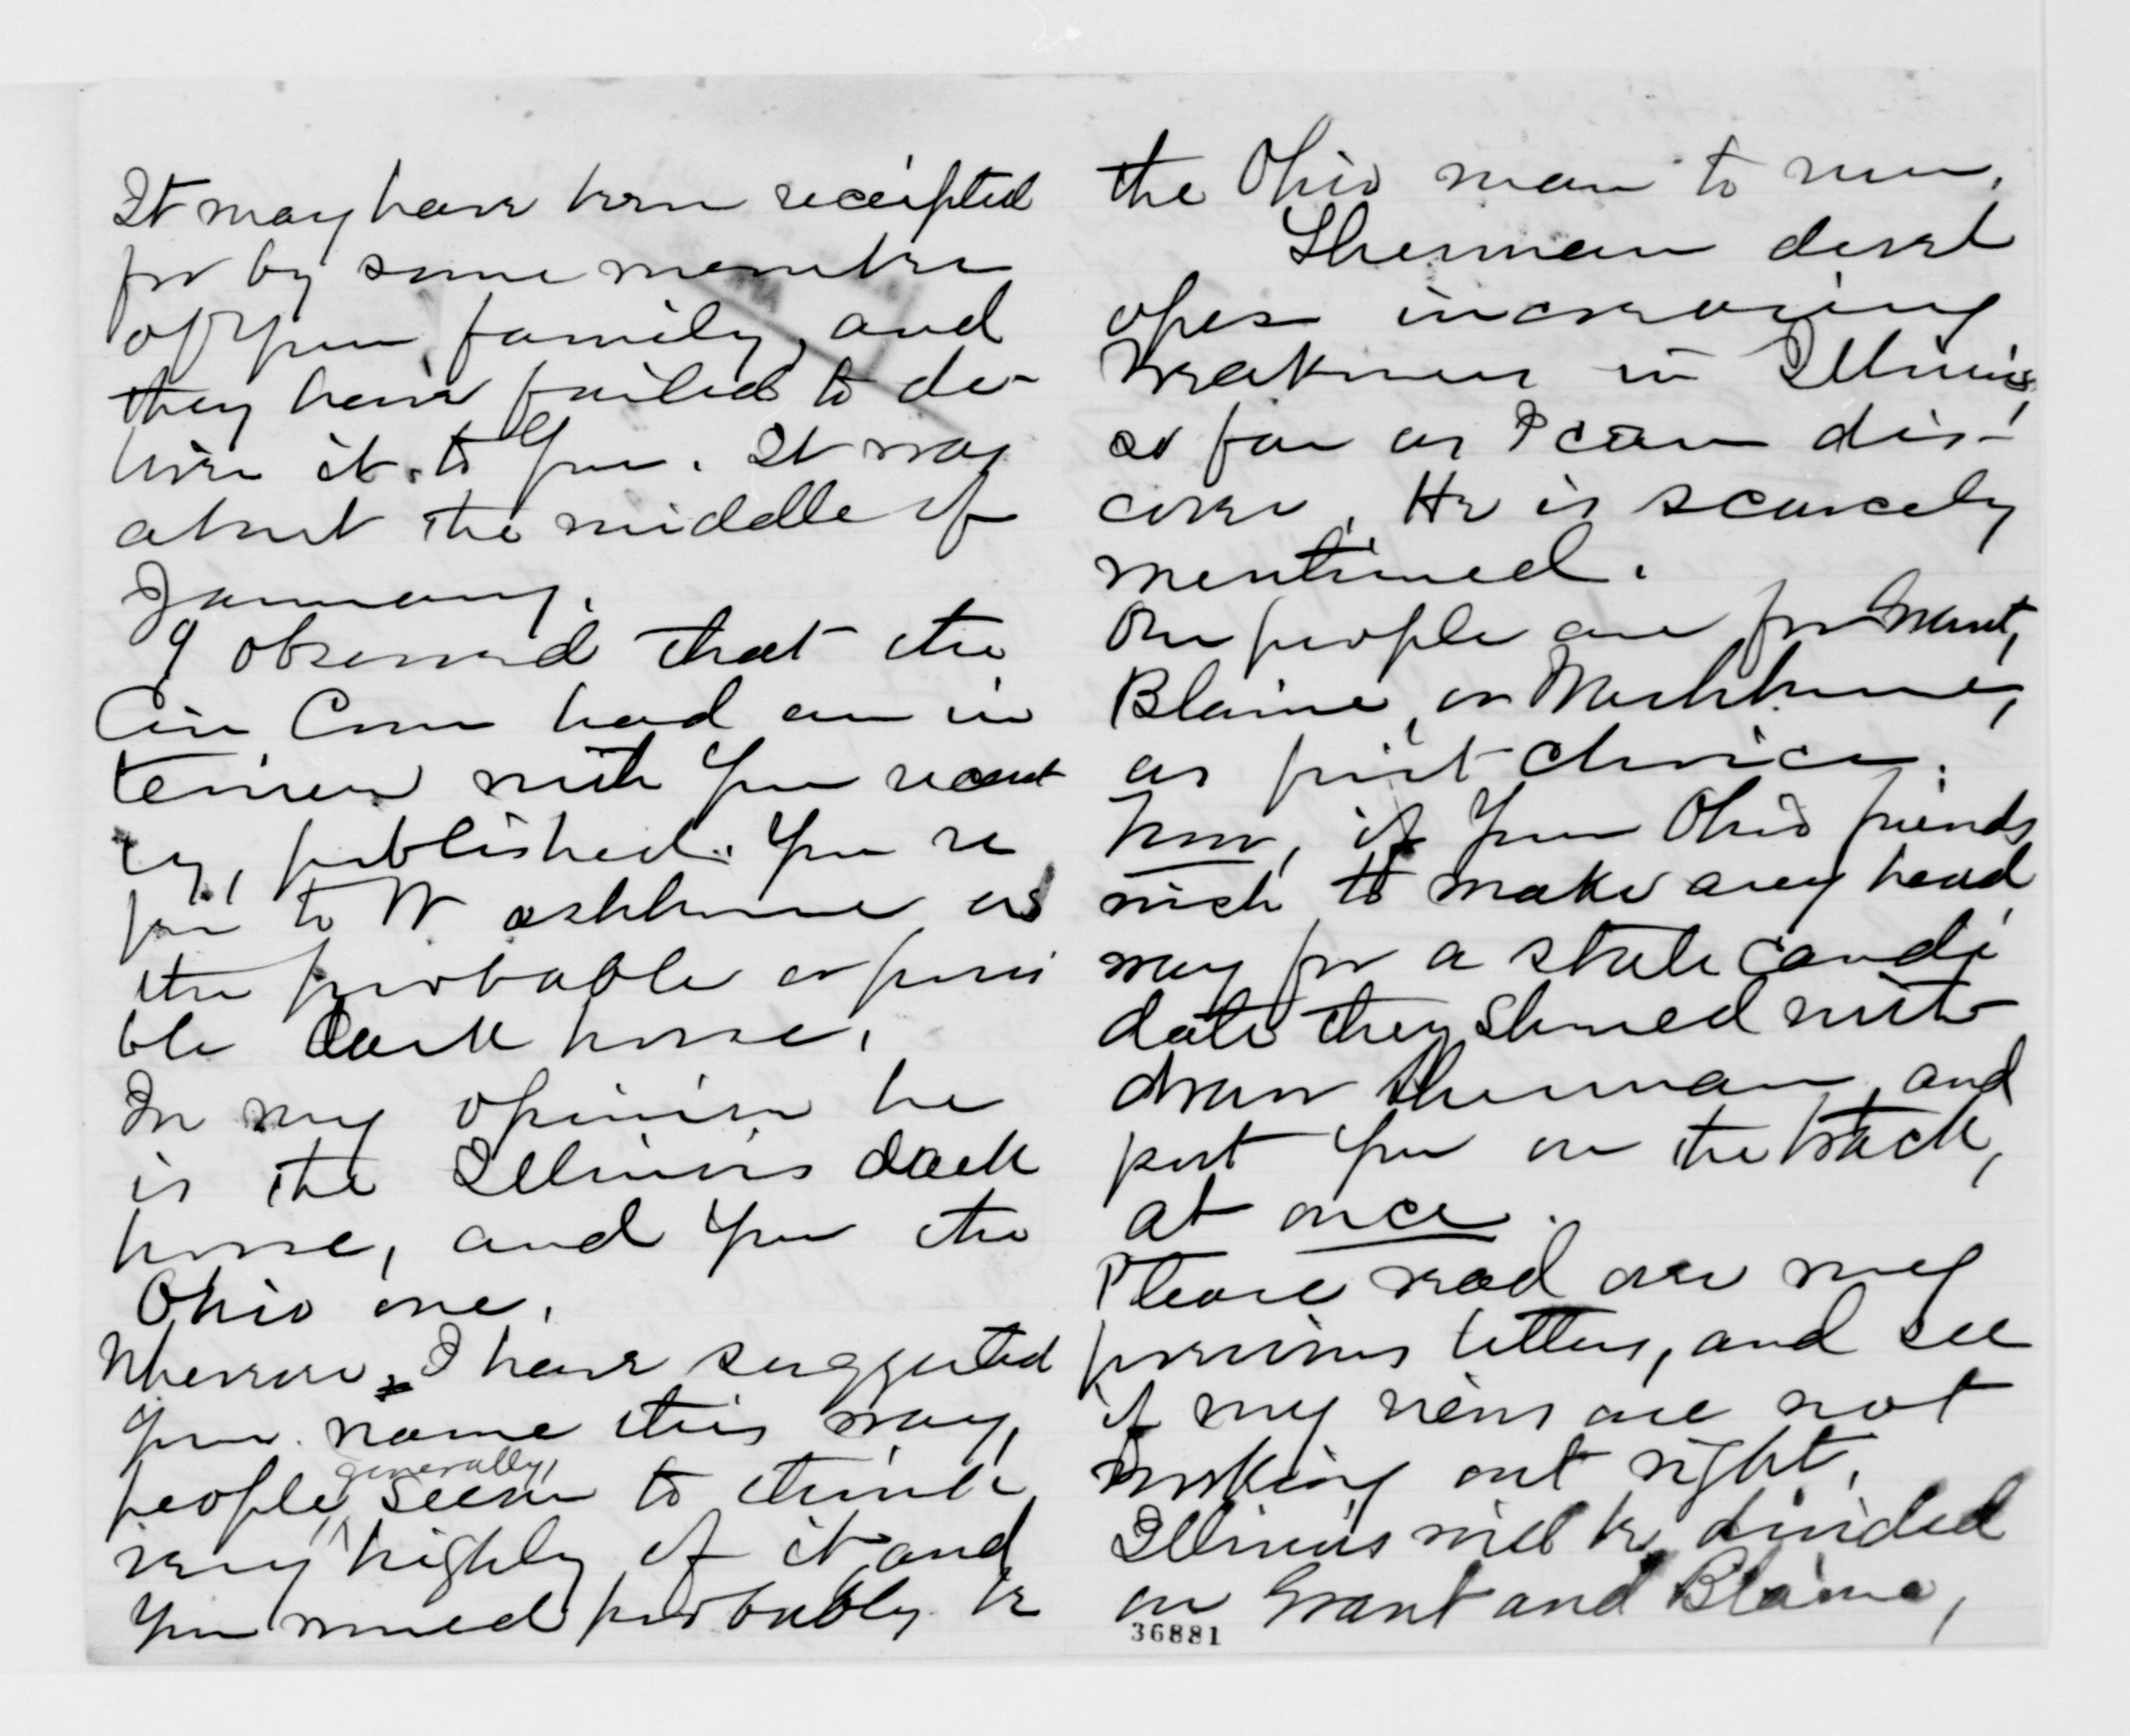 It may have been receipted
for by some member
of your family, and
they have failed to de-
liver it to you. It was
about the middle of
January.
I observed that the
Cin Com had an in
terview with you recent
ly, published. You re
fer to Washburne as
the probable or possi
ble dark horse.
In my opinion he
is the Illinois dark
horse, and you the
Ohio one.
Wherever I have suggested
your name this way,
people generally, seem to think
very highly of it, and
you would probably be
the Ohio man to run.
Sherman devel
opes increasing
weakness in Illinois,
so far as I can dis-
cover. He is scarcely
mentioned.
Our people are for Grant,
Blaine, or Washburne,
as first choice.
Now, if your Ohio friends
wish to make any head
way for a state candi
date they should with
draw Sherman, and
put you on the track,
at once.
Please read over my
previous letters, and see
if my views are not
working out right.
Illinois will be divided
on Grant and Blaine,
36881